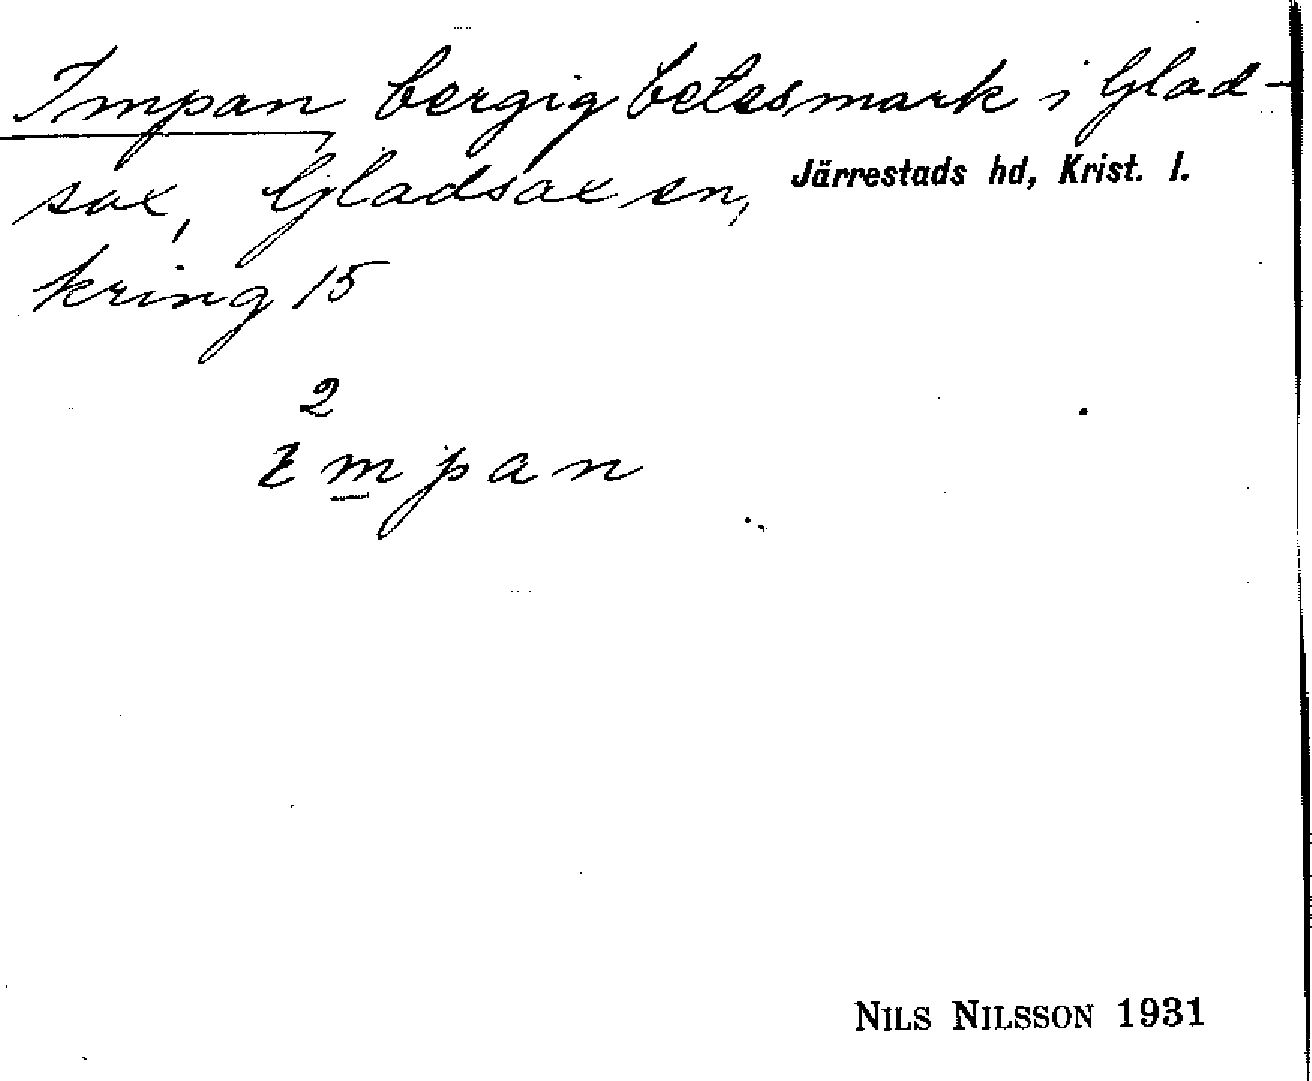 Impan bergig betesmark i Glad-
sax, Gladsax sn, Järrestads hd, Krist. l.
kring 15
2
Empan
NILS NILSSON 1931